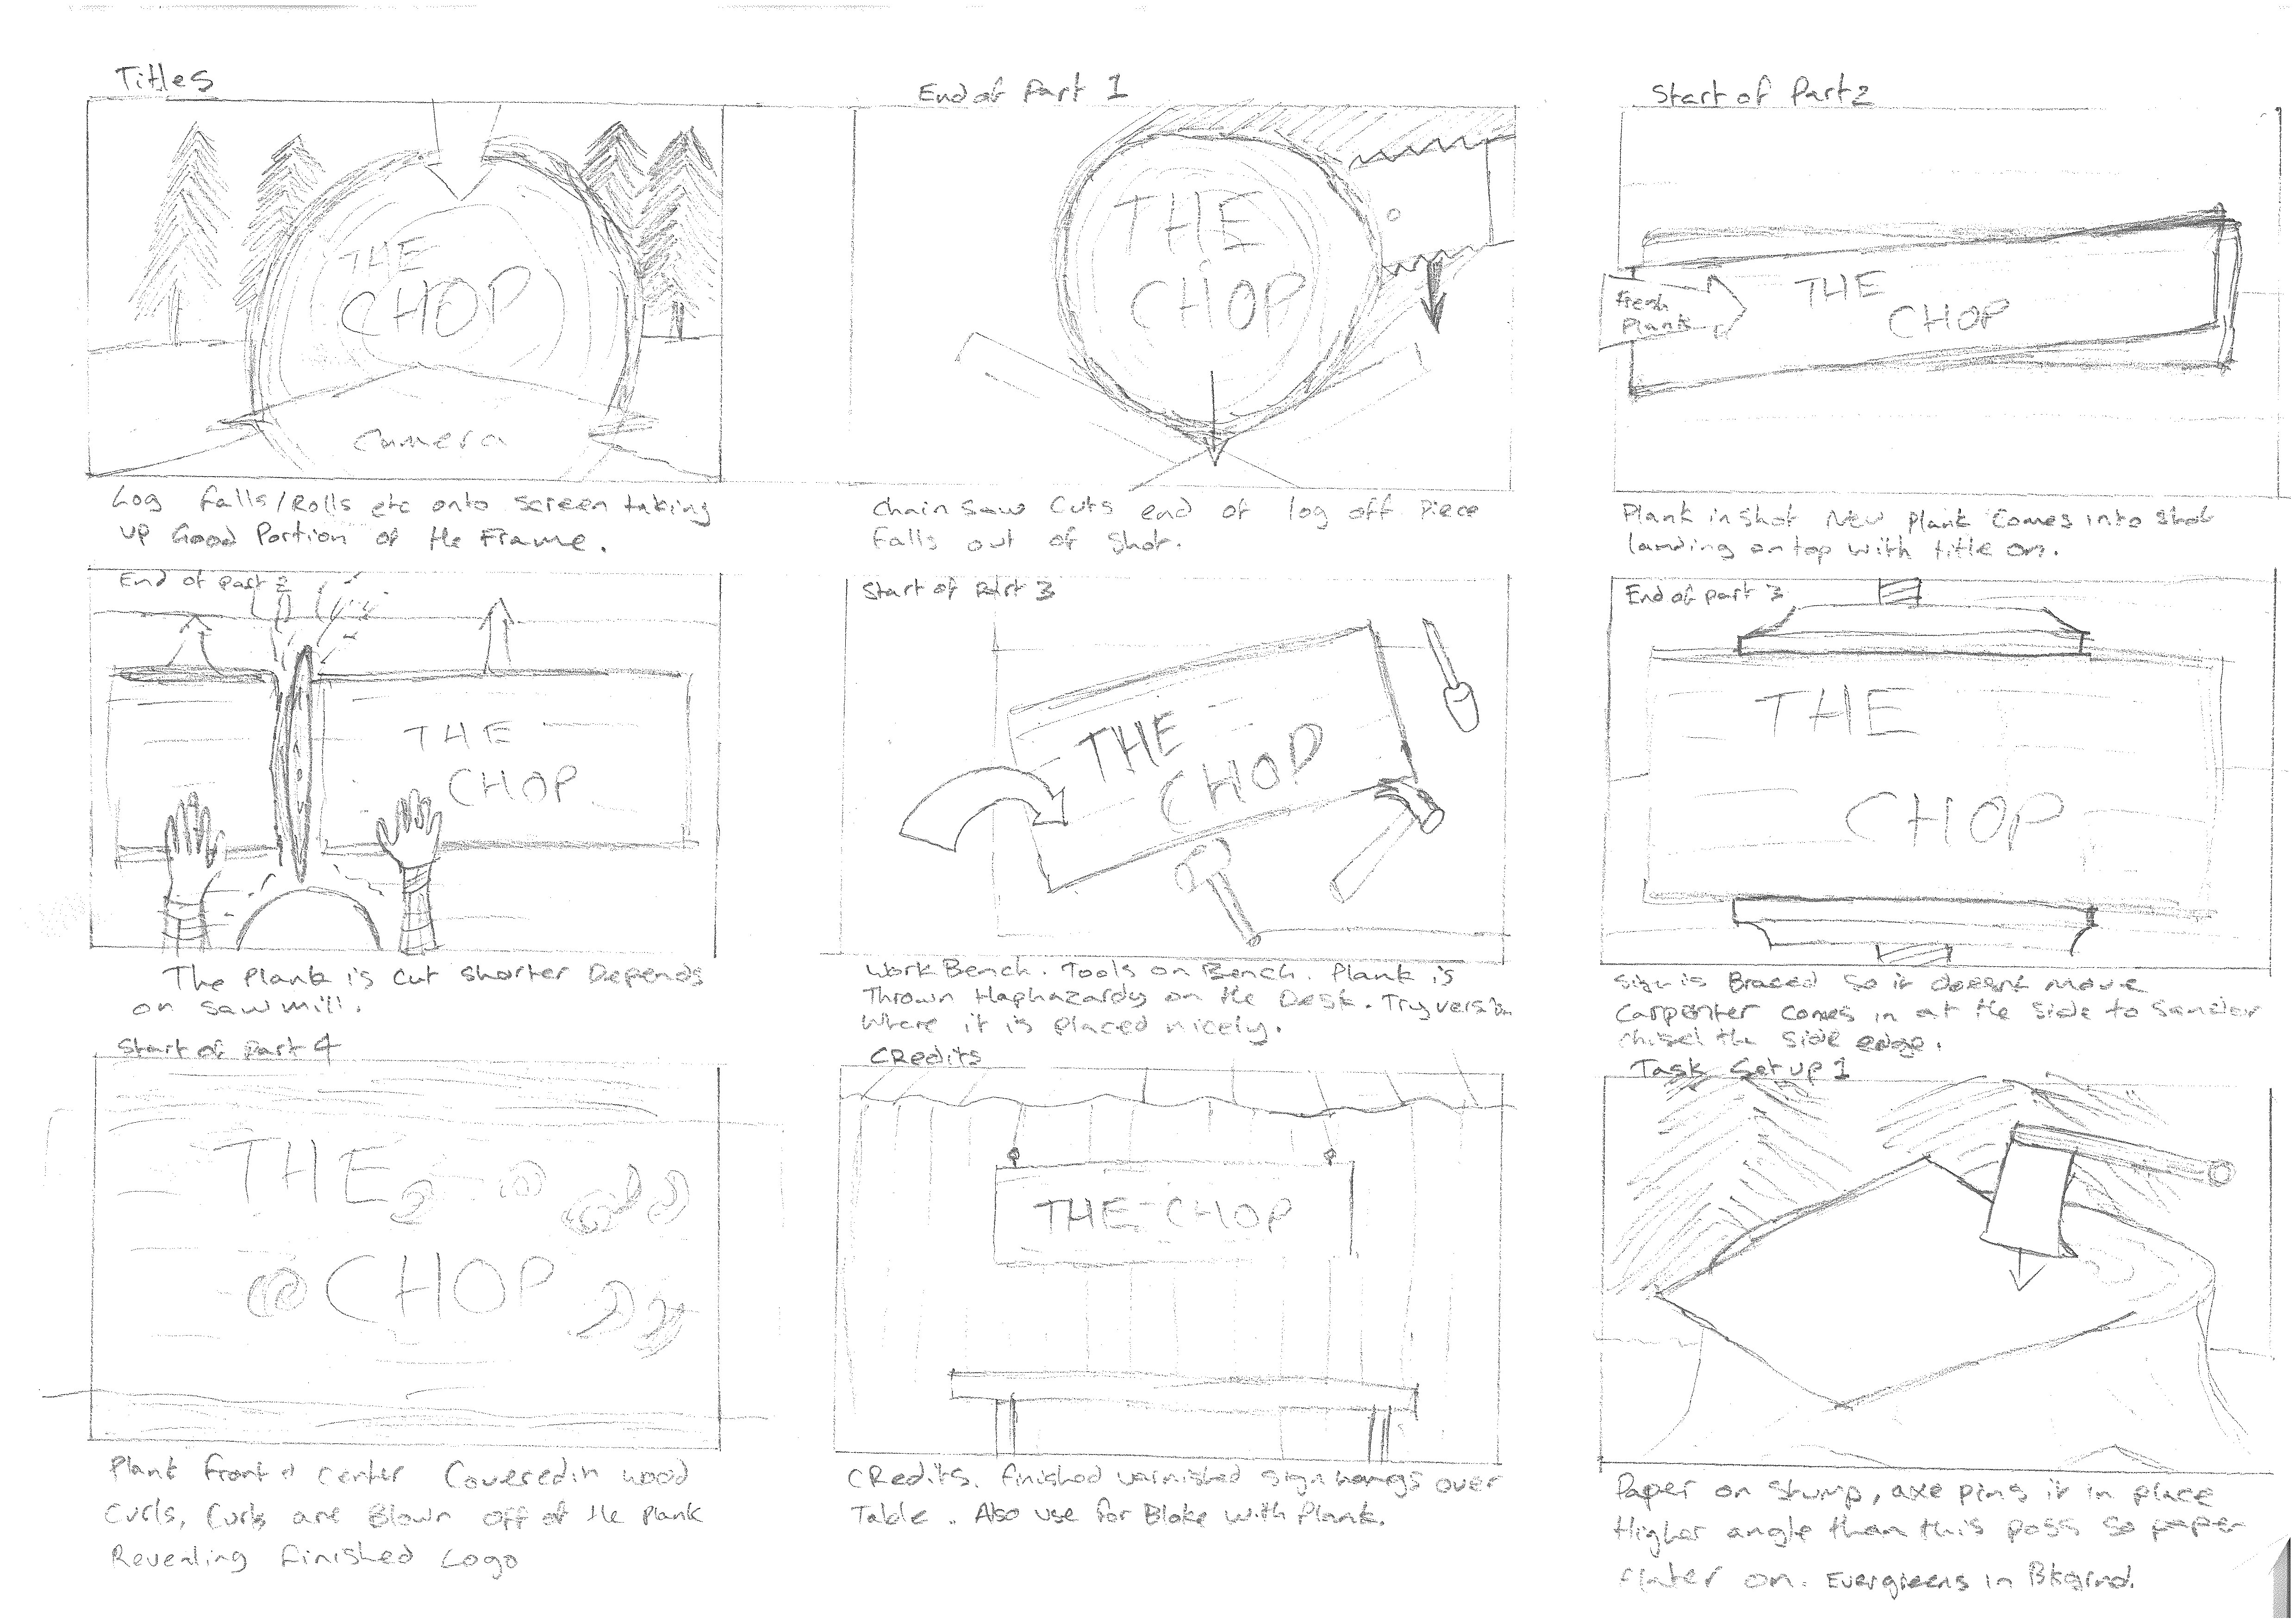 Titles
THE
CHOP
Camera
Log Falls/Rolls etc onto screen taking
up Good Portion of the Frame.
End of Part 1
THE
CHOP
Chainsaw Cuts end of log off Piece
Falls out of Shot.
Start of Part 2
Fresh
Plank
THE
CHOP
Plank in shot New Plank Comes into Shot
landing on top with title on.
End of part 2
THE
CHOP
The Plank is cut shorter Depends
on sawmill.
Start of Part 3
THE
CHOP
Work Bench. Tools on Bench. Plank is
Thrown Haphazardy on the Desk. Try version
Where it is placed nicely.
End of part 3
THE
CHOP
Sign is Braced so it doesnt Move
Carpenter comes in at the side to sand or
chisel the side edge.
Start of Part 4
THE
CHOP
Plank front & center Covered in wood
Curls, Curls are Blown off of the Plank
Revealing Finished Logo
CRedits
THE CHOP
CRedits. Finished varnished sign hangs over
Table. Also use for Bloke with Plank.
Task Set up 1
Paper on Stump, axe pins it in place
Higher angle than this poss so paper
flater on. Evergreens in Bkgrnd.